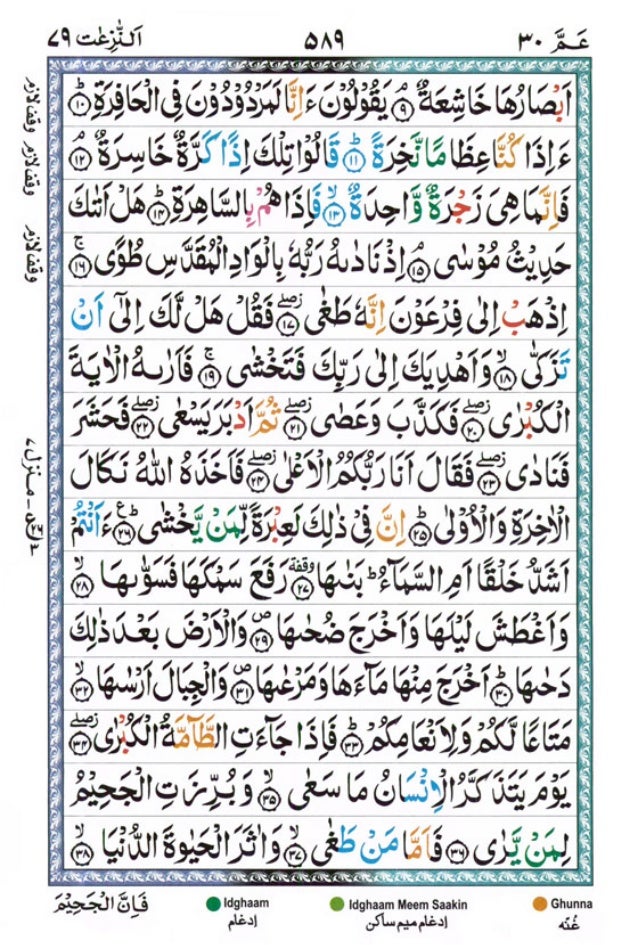 عَـمَّ ٣٠ ٥٨٩ اَلنّٰزِعٰت ٧٩
اَبۡصَارُهَا خَاشِعَةٌ ۘ‏﴿۹﴾ يَقُوۡلُوۡنَ ءَاِنَّا لَمَرۡدُوۡدُوۡنَ فِى الۡحَـافِرَةِ ؕ‏﴿۱۰﴾
ءَاِذَا كُنَّا عِظَامًا نَّخِرَةً ؕ‏﴿۱۱﴾ قَالُوۡا تِلۡكَ اِذًا كَرَّةٌ خَاسِرَةٌ ۘ‏﴿۱۲﴾
فَاِنَّمَا هِىَ زَجۡرَةٌ وَّاحِدَةٌ ۙ‏﴿۱۳﴾ فَاِذَا هُمۡ بِالسَّاهِرَةِ ؕ‏﴿۱۴﴾ هَلۡ اَتٰٮكَ
حَدِيۡثُ مُوۡسٰى ۘ‏﴿۱۵﴾ اِذۡ نَادٰٮهُ رَبُّهٗ بِالۡوَادِ الۡمُقَدَّسِ طُوًى ۚ‏﴿۱۶﴾
اِذۡهَبۡ اِلٰى فِرۡعَوۡنَ اِنَّهٗ طَغٰى ۖ‏﴿۱۷﴾ فَقُلۡ هَلۡ لَّكَ اِلٰٓى اَنۡ
تَزَكّٰى ۙ‏﴿۱۸﴾ وَاَهۡدِيَكَ اِلٰى رَبِّكَ فَتَخۡشٰى ۚ‏﴿۱۹﴾ فَاَرٰٮهُ الۡاٰيَةَ
الۡكُبۡرٰى ۖ‏﴿۲۰﴾ فَكَذَّبَ وَعَصٰى ۖ‏﴿۲۱﴾ ثُمَّ اَدۡبَرَ يَسۡعٰى ۖ‏﴿۲۲﴾ فَحَشَرَ
فَنَادٰى ۖ‏﴿۲۳﴾ فَقَالَ اَنَا رَبُّكُمُ الۡاَعۡلٰى ۖ‏﴿۲۴﴾ فَاَخَذَهُ اللّٰهُ نَڪَالَ
الۡاٰخِرَةِ وَالۡاُوۡلٰى ؕ‏﴿۲۵﴾ اِنَّ فِىۡ ذٰلِكَ لَعِبۡرَةً لِّمَنۡ يَّخۡشٰى ؕ‏﴿۲۶﴾ ءَاَنۡتُمۡ
اَشَدُّ خَلۡقًا اَمِ السَّمَآءُ ؕ بَنٰٮهَا وقفة ﴿۲۷﴾ رَفَعَ سَمۡكَهَا فَسَوّٰٮهَا ۙ‏﴿۲۸﴾
وَ اَغۡطَشَ لَيۡلَهَا وَاَخۡرَجَ ضُحٰٮهَا ۖ‏﴿۲۹﴾ وَالۡاَرۡضَ بَعۡدَ ذٰلِكَ
دَحٰٮهَا ؕ‏﴿۳۰﴾ اَخۡرَجَ مِنۡهَا مَآءَهَا وَمَرۡعٰٮهَا ۖ‏﴿۳۱﴾ وَالۡجِبَالَ اَرۡسٰٮهَا ۙ‏﴿۳۲﴾
مَتَاعًا لَّـكُمۡ وَلِاَنۡعَامِكُمۡ ؕ‏﴿۳۳﴾ فَاِذَا جَآءَتِ الطَّآمَّةُ الۡكُبۡرٰى ۖ‏﴿۳۴﴾
يَوۡمَ يَتَذَكَّرُ الۡاِنۡسَانُ مَا سَعٰى ۙ‏﴿۳۵﴾ وَبُرِّزَتِ الۡجَحِيۡمُ
لِمَنۡ يَّرٰى ﴿۳۶﴾ فَاَمَّا مَنۡ طَغٰى ۙ‏﴿۳۷﴾ وَاٰثَرَ الۡحَيٰوةَ الدُّنۡيَا ۙ‏﴿۳۸﴾
وقف لازم
وقف لازم
وقف لازم
وقف لازم
منزل ٧
Ghunna Idghaam Meem Saakin Idghaam فَاِنَّ الۡجَحِيۡمَ
غُنّه اِدغام میم ساکن اِدغام